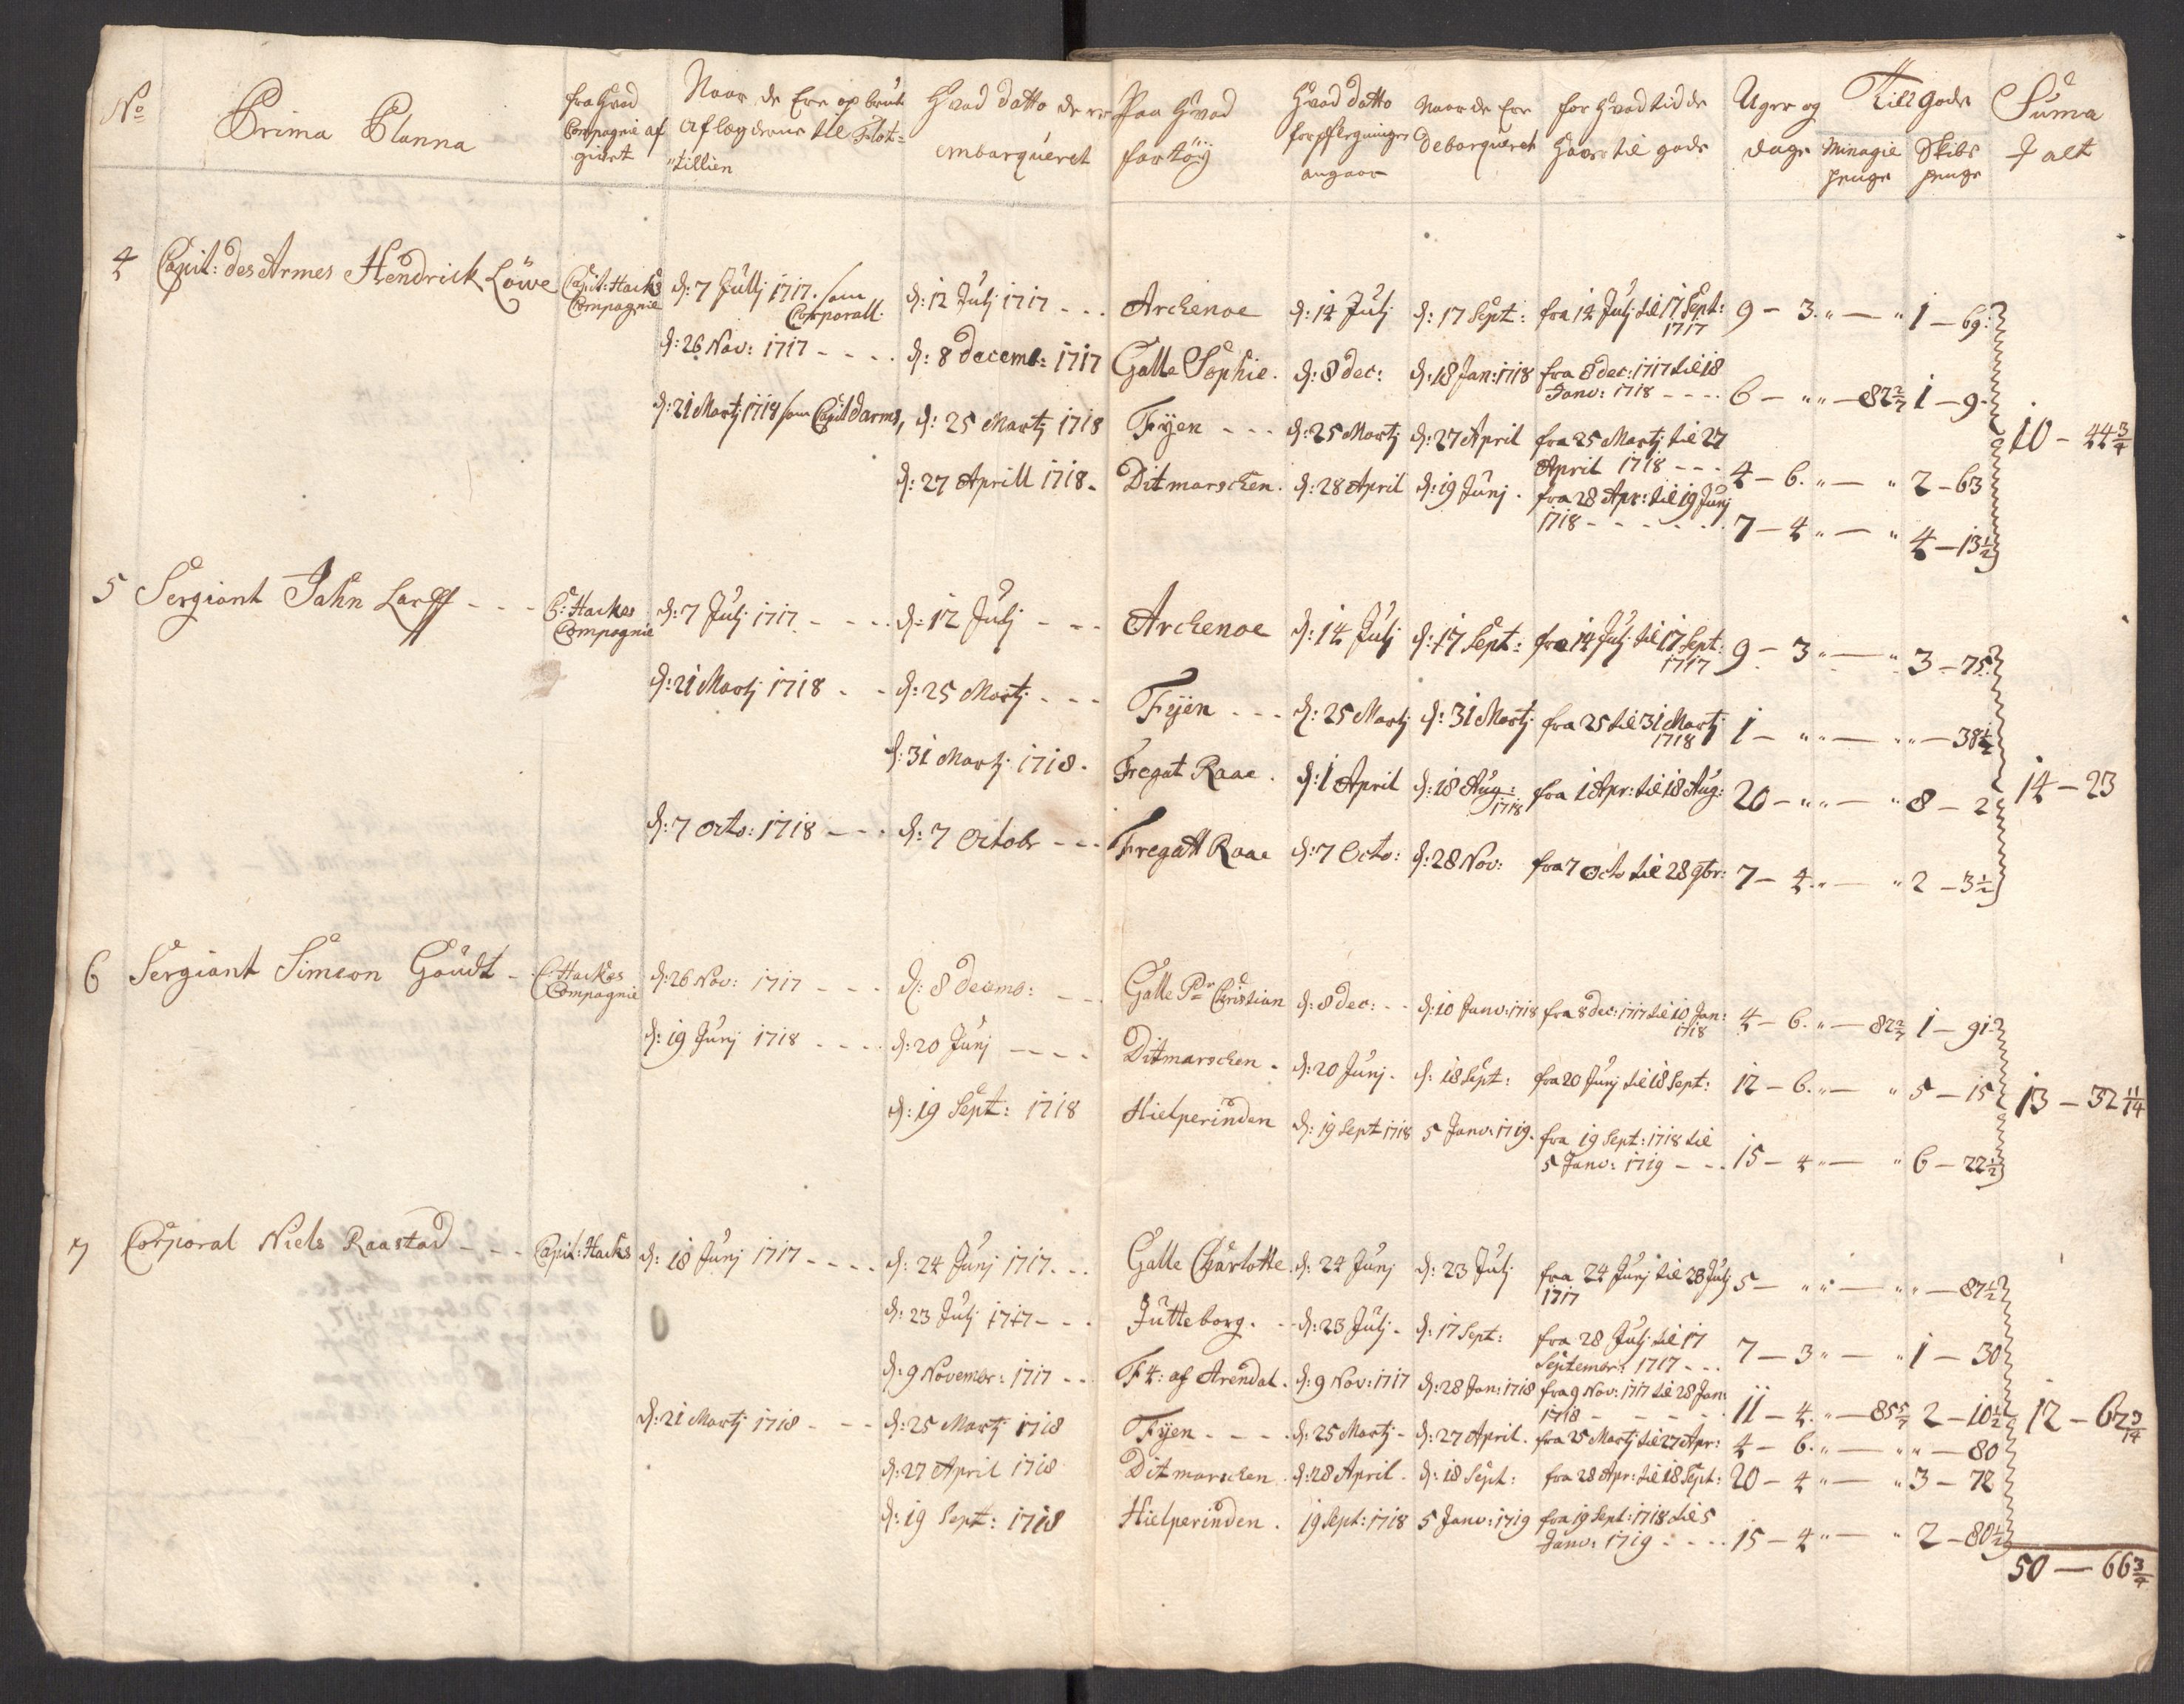 No
Prima Planna
fra Hvad Compagnie af giut
Naar de Ere op brut af legderne til Flottillien
Hvad datto de er embarqueret
Paa Hvad fartöÿ
Hvad datto forpflegninger angaar
Naar de Ere debarqueret
for Hvad tid de Haver til gode
Uger og dage
Till gode
Minagie penge
Skibs penge
Suma I alt
4 Capit: des Armes Hendrick Löwe Capit: Hacks Compagnie d: 7 Julij 1717. som Corporall. d: 12 Julj 1717 - - - Archenoe d: 14 Julj d: 17 Sept: fra 14 Julj til 17 Sept: 1717 9 - 3. " — " 1 — 69:
d: 26 Nov: 1717 - - - - d: 8 decemb: 1717 Galle Sophie. d: 8 dec: d: 18 Jan: 1718 fra 8 dec: 1717 til 18 Janv: 1718 - - - - 6 — " " — 82 2/7 1 — 9.
d: 21 Martj 1718 som Capit darms, d: 25 Martj 1718 Fyen - - - d: 25 Martj d: 27 April fra 25 Martj til 27 April 1718 - - - 4 — 6. " — " 2 — 63
d: 27 Aprill 1718. Ditmarschen. d: 28 April d: 19 Junj. fra 28 Apr: til 19 Junj 1718 - - - - - - 7 — 4 " — " 4 — 13 1/2
10 — 44 3/4
5 Sergiant Jahn Larff - - - C: Hackes Compagnie d: 7 Julj 1717 - - - - d: 12 Julj - - - Archenoe d: 14 Julj d: 17 Sept: fra 14 Julj til 17 Sept: 1717 9 — 3 " — " 3 — 75.
d: 21 Martj 1718 - - d: 25 Martj - - - Fyen - - - d: 25 Martj d: 31 Martj fra 25 til 31 Martj 1718 1 — " " — " " — 38 1/2
d: 31 Martj 1718. Fregat Raae. d: 1 April d: 18 Aug: 1718 fra 1 Apr: til 18 Aug: 20 — " " — " 8 — 2
d: 7 octo: 1718 - - - d: 7 octobr - - - Fregatt Raae d: 7 Octo: d: 28 Nov: fra 7 octo til 28 9br: 7 — 4. " — " 2 — 3 1/2
14 — 23
6 Sergiant Simeon Goudt - C: Hackes Compagnie d: 26 Nov: 1717 - - - d: 8 decemb: - - - Galle Pr Christian d: 8 dec: - - d: 10 Janv: 1718 fra 8 dec: 1717 til 10 Jan: 1718 4 — 6. " — 82 2/7 1 — 91
d: 19 Junj 1718 - - - - d: 20 Junj - - - - Ditmarschen. d: 20 Junj. d: 18 Sept: fra 20 Junj til 18 Sept: 12 — 6. " — " 5 — 15
d: 19 Sept: 1718 Hielperinden d: 19 Sept 1718 5 Janv: 1719. fra 19 Sept: 1718 til 5 Janv: 1719 - - - 15 — 4 " — " 6 — 22 1/2
13 — 32 11/14
7 Corporal Niels Raastad - - - Capit: Hacks d: 18 Junj 1717 - - - - d: 24 Junj 1717. - - Galle Charlotte. d: 24 Junj d: 23 Julj fra 24 Junj til 28 Julj 1717 5 — " " — " " — 87 1/2
d: 23 Julj 1717 - - - Jutteborg. - - d: 23 Julj. d: 17 Sept: fra 28 Julj til 17 Septembr: 1717 - - - 7 — 3 " — " 1 — 30
d: 9 November: 1717 - - F4: af Arendal. d: 9 Nov: 1717 d: 28 Jan: 1718 fra 9 Nov: 1717 til 28 Jan: 1718 - - - - - 11 — 4. " — 85 5/7 2 — 10 1/2
d: 21 Martj 1718 - - - d: 25 Martj 1718 Fyen - - - - d: 25 Martj - d: 27 April. fra 25 Martj til 27 Apr: 4 — 6. " — " " — 80
d: 27 April 1718 Ditmarschen. d: 28 April. d: 18 Sept: fra 28 Apr: til 18 Sept: 20 — 4 " — " 3 — 72
d: 19 Sept: 1718 Hielperinden. 19 Sept: 1718 5 Janv: 1719 fra 19 Sept: 1718 til 5 Janv: 1719 - - - - 15 — 4 " — " 2 — 80 1/2
12 — 62 3/14
50 — 66 3/4